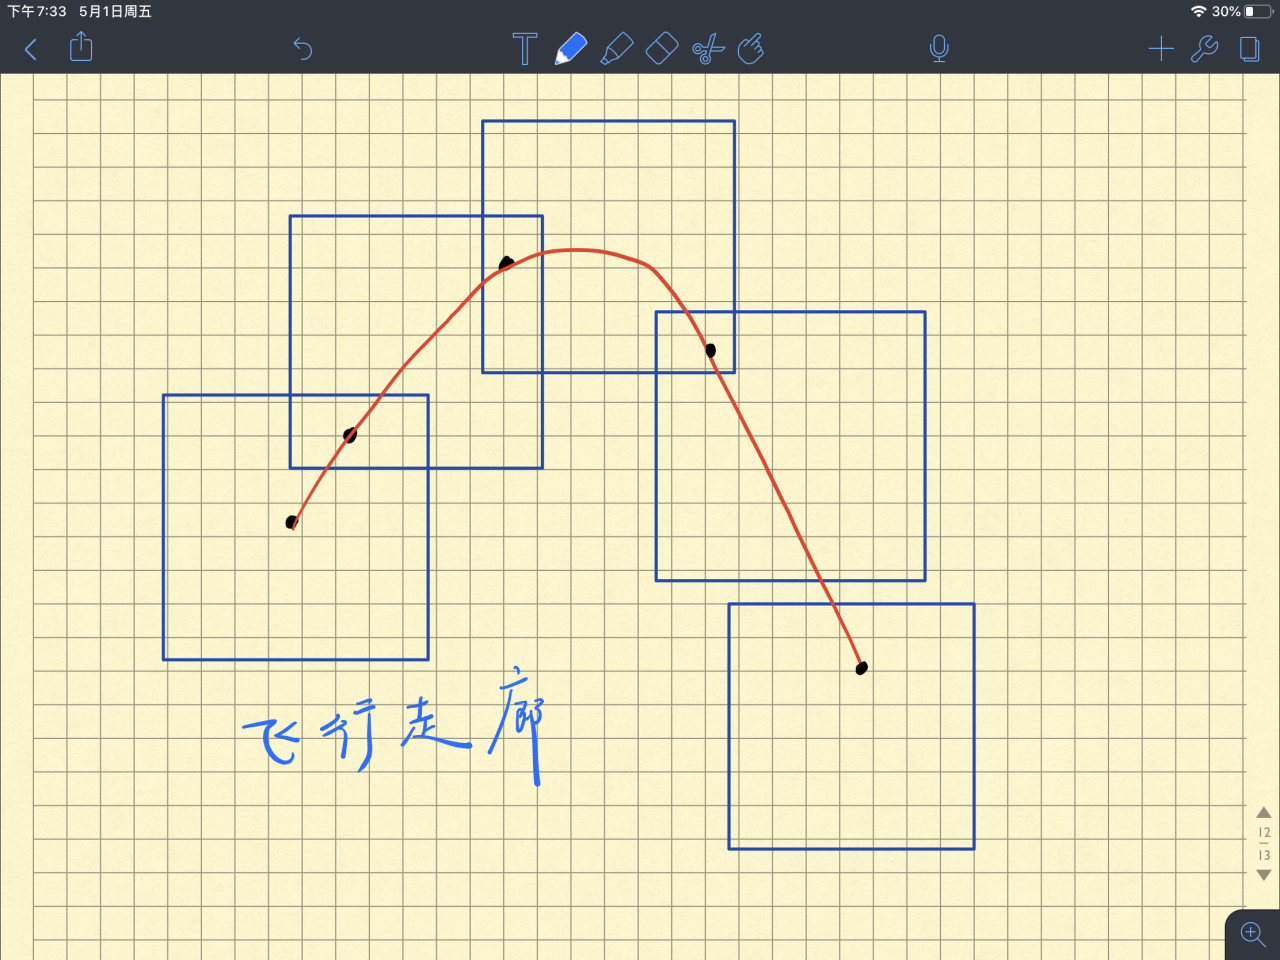 下午7:33 5月1日周五
30%
飞行走廊
12
13